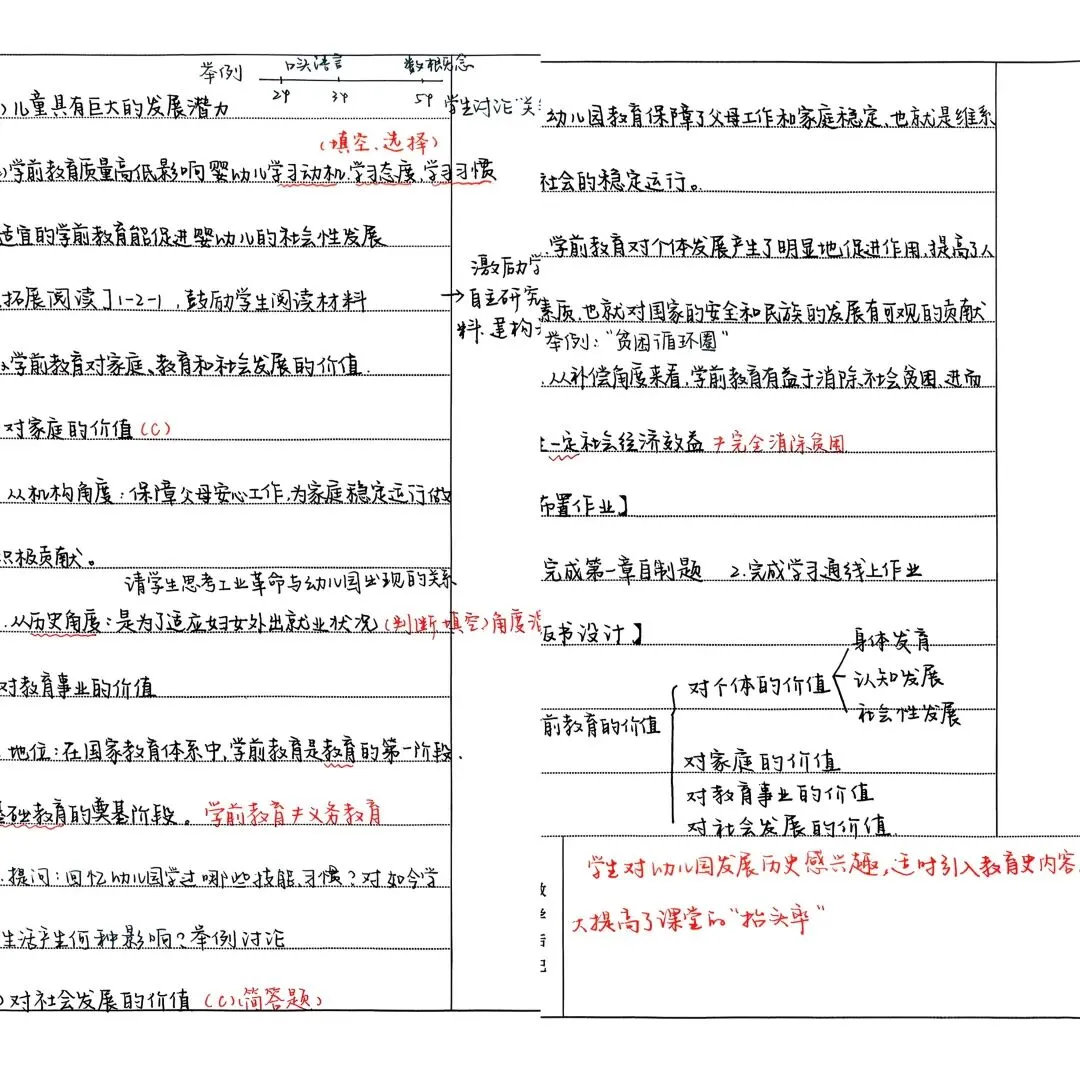 举例 口头语言 数概念
2岁 3岁 5岁
)儿童具有巨大的发展潜力
学生讨论"关
(填空、选择)
学前教育质量高低影响婴幼儿学习动机,学习态度,学习习惯
适宜的学前教育能促进婴幼儿的社会性发展
激励学
拓展阅读]1-2-1,鼓励学生阅读材料
→自主研究
料,建构
学前教育对家庭、教育和社会发展的价值.
对家庭的价值(C)
从机构角度:保障父母安心工作,为家庭稳定运行做
积极贡献。
请学生思考工业革命与幼儿园出现的关系
.从历史角度:是为了适应妇女外出就业状况(判断填空)角度
对教育事业的价值
地位:在国家教育体系中,学前教育是教育的第一阶段、
基础教育的奠基阶段。学前教育≠义务教育
.提问:回忆幼儿园学过哪些技能、习惯?对如今学
生活产生何种影响?举例讨论
)对社会发展的价值(C)(简答题)
幼儿园教育保障了父母工作和家庭稳定,也就是维系
社会的稳定运行。
.学前教育对个体发展产生了明显地促进作用,提高了人
素质,也就对国家的安全和民族的发展有可观的贡献
举例:"贫困循环圈"
.从补偿角度来看,学前教育有益于消除社会贫困,进而
一定社会经济效益≠完全消除贫困
布置作业】
完成第一章自制题 2.完成学习通线上作业
板书设计】
身体发育
对个体的价值 认知发展
社会性发展
前教育的价值
对家庭的价值
对教育事业的价值
对社会发展的价值.
教学后记
学生对幼儿园发展历史感兴趣,适时引入教育史内容,
大提高了课堂的"抬头率"